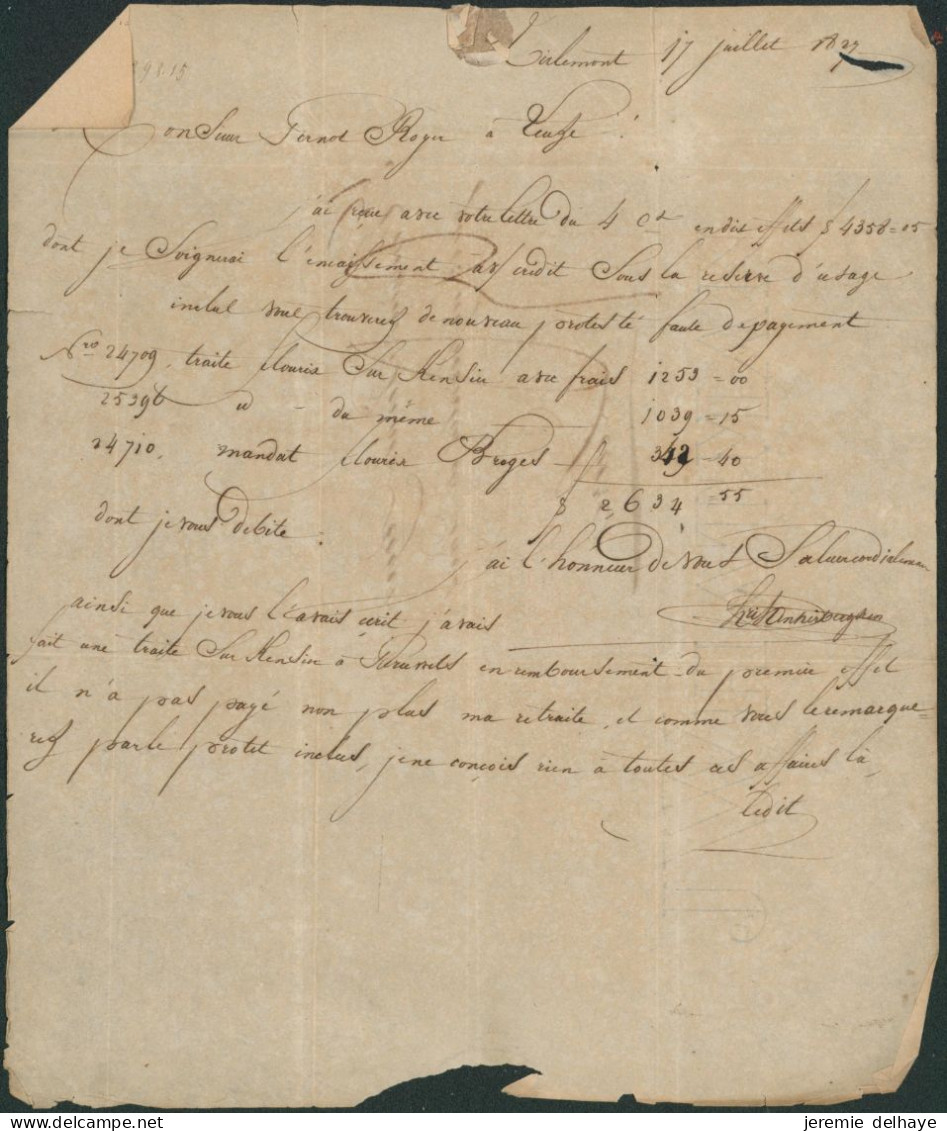 898.15
Tirlemont 17 juillet 1827
Monsieur Fernot Roger à Leuze
j'ai reçu avec votre lettre du 4 Ct en dix effets f 4358=15
dont je Soignerai l'encaissement a/s crédit Sous la reserve d'usage
inclus vous trouverez de nouveau protesté faute de payement
Nro 24709, traite Sur Kensier avec frais 1253=00
25396 id - du même 1039=15
24710, mandat Broges 342=40
f 2634=55
dont je vous debite.
j'ai l'honneur de vous Saluer cordialement
ainsi que je vous l'avais écrit j'avais
fait une traite Sur Kensier à en remboursement du premier effet
il n'a pas payé non plus ma retraite, et comme vous le remarque=
rez par le protet inclus, je ne conçois rien à toutes ces affaires là,
Ledit
jeremie delhaye